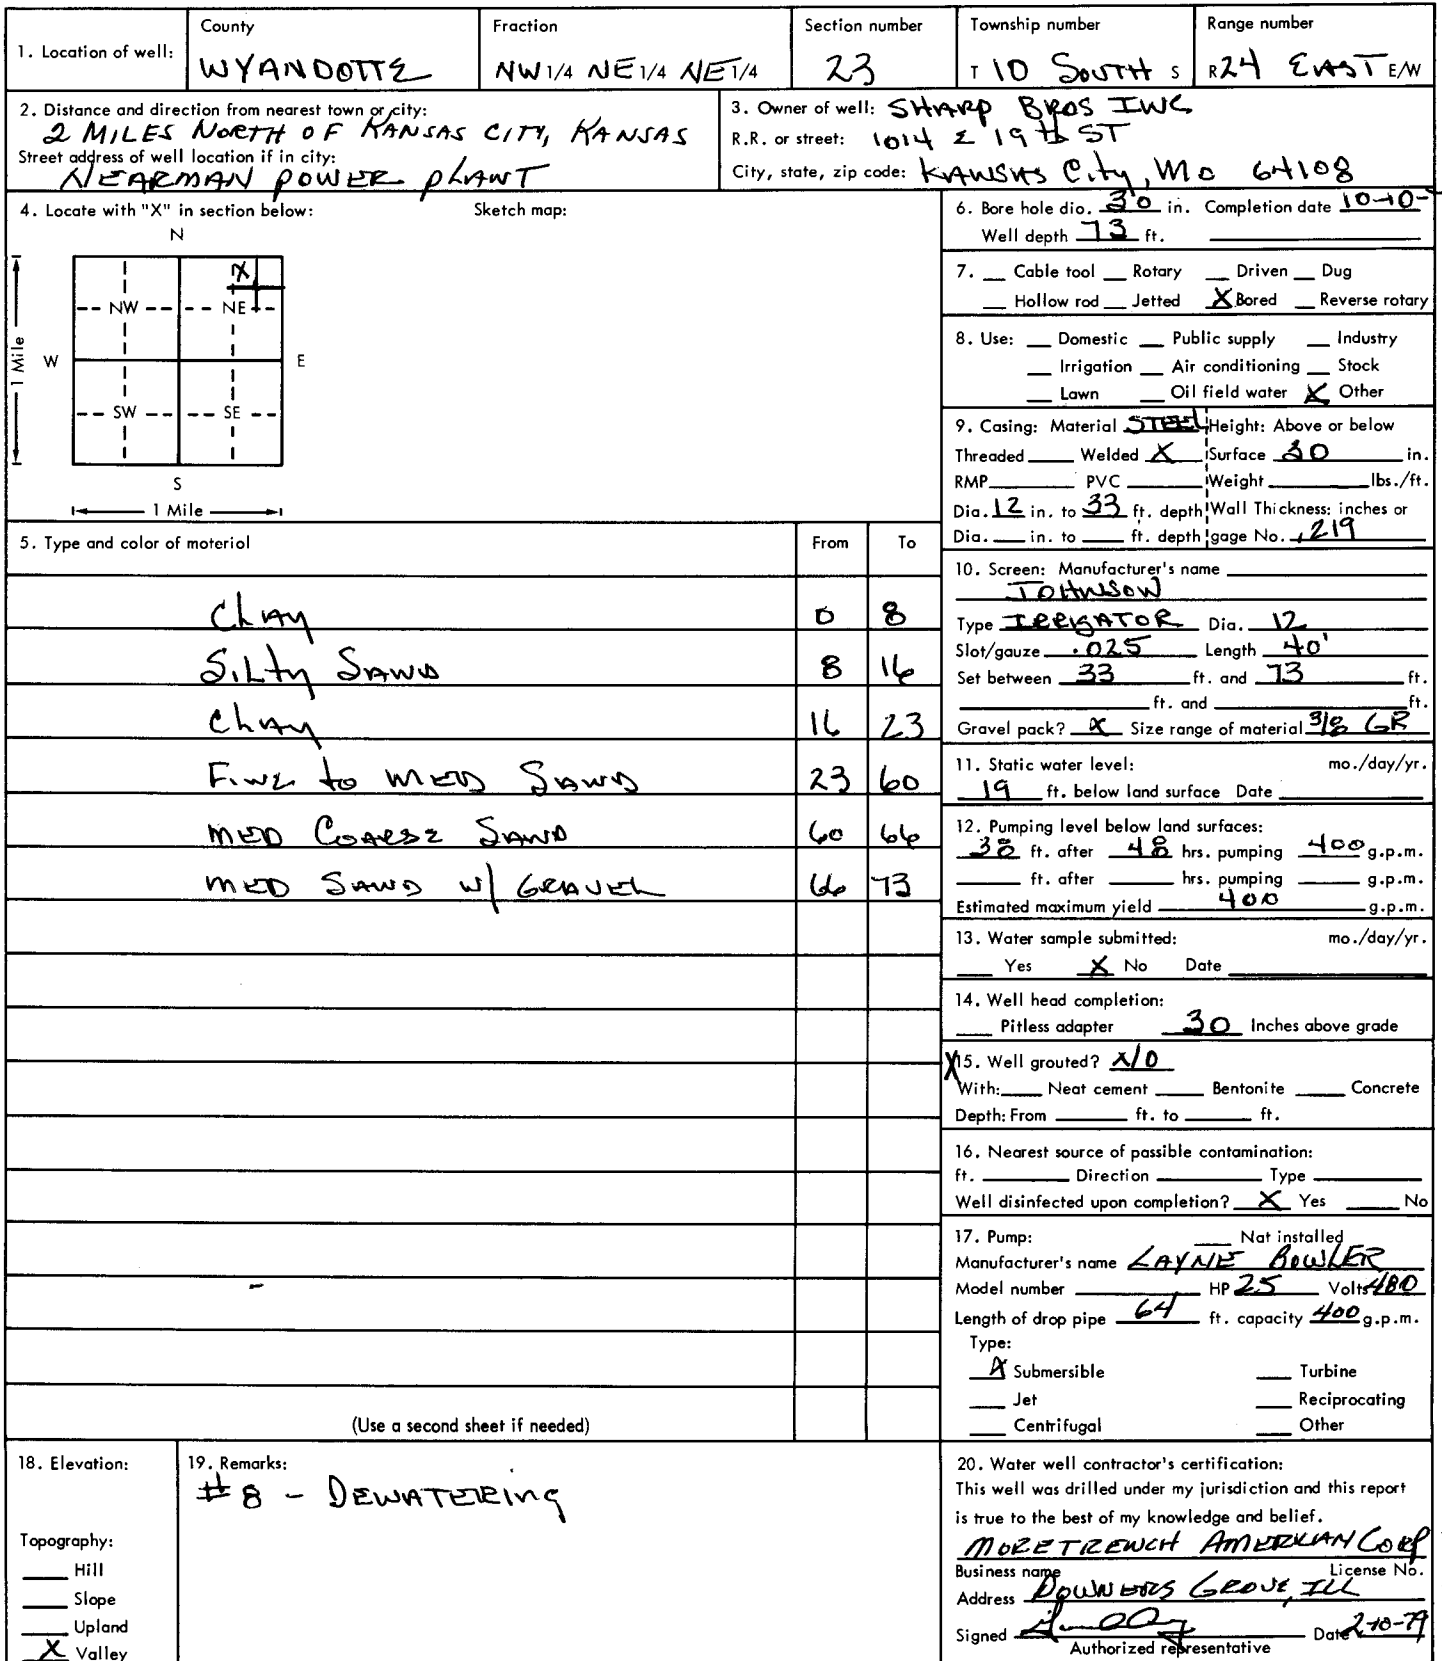 1. Location of well:
County
WYANDOTTE
Fraction
NW 1/4 NE 1/4 NE 1/4
Section number
23
Township number
T 10 SOUTH S
Range number
R 24 EAST E/W
2. Distance and direction from nearest town or city:
2 MILES NORTH OF KANSAS CITY, KANSAS
Street address of well location if in city:
NEARMAN POWER PLANT
3. Owner of well: SHARP BROS INC
R.R. or street: 1014 E 19th ST
City, state, zip code: KANSAS City, MO 64108
4. Locate with "X" in section below:
Sketch map:
N
X
NW NE
1 Mile
W
E
SW SE
S
1 Mile
5. Type and color of material From To
Clay 0 8
Silty Sand 8 16
Clay 16 23
Fine to MED SAND 23 60
MED COARSE SAND 60 66
MED SAND w/ GRAVEL 66 73
(Use a second sheet if needed)
6. Bore hole dia. 30 in. Completion date 10-10-
Well depth 73 ft.
7. Cable tool Rotary Driven Dug
Hollow rod Jetted X Bored Reverse rotary
8. Use: Domestic Public supply Industry
Irrigation Air conditioning Stock
Lawn Oil field water X Other
9. Casing: Material STEEL Height: Above or below
Threaded Welded X Surface 30 in.
RMP PVC Weight lbs./ft.
Dia. 12 in. to 33 ft. depth Wall Thickness: inches or
Dia. in. to ft. depth gage No. .219
10. Screen: Manufacturer's name
JOHNSON
Type IRRIGATOR Dia. 12
Slot/gauze .025 Length 40'
Set between 33 ft. and 73 ft.
ft. and ft.
Gravel pack? X Size range of material 3/8 GR
11. Static water level: mo./day/yr.
19 ft. below land surface Date
12. Pumping level below land surfaces:
38 ft. after 48 hrs. pumping 400 g.p.m.
ft. after hrs. pumping g.p.m.
Estimated maximum yield 400 g.p.m.
13. Water sample submitted: mo./day/yr.
Yes X No Date
14. Well head completion:
Pitless adapter 30 Inches above grade
X 15. Well grouted? NO
With: Neat cement Bentonite Concrete
Depth: From ft. to ft.
16. Nearest source of possible contamination:
ft. Direction Type
Well disinfected upon completion? X Yes No
17. Pump: Not installed
Manufacturer's name LAYNE BOWLER
Model number HP 25 Volts 480
Length of drop pipe 64 ft. capacity 400 g.p.m.
Type:
X Submersible Turbine
Jet Reciprocating
Centrifugal Other
18. Elevation:
Topography:
Hill
Slope
Upland
X Valley
19. Remarks:
#8 - DEWATERING
20. Water well contractor's certification:
This well was drilled under my jurisdiction and this report
is true to the best of my knowledge and belief.
MORETRENCH AMERICAN CORP
Business name License No.
Address DOWNERS GROVE, ILL
Signed Date 2-10-79
Authorized representative